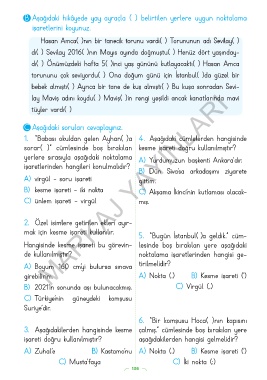 B Aşağıdaki hikâyede yay ayraçla ( ) belirtilen yerlere uygun noktalama
işaretlerini koyunuz.
Hasan Amca( )nın bir tanecik torunu vardı( ) Torununun adı Sevilay( )
dı( ) Sevilay 2016( )nın Mayıs ayında doğmuştu( ) Henüz dört yaşınday-
dı( ) Önümüzdeki hafta 5( )inci yaş gününü kutlayacaktı( ) Hasan Amca
torununu çok seviyordu( ) Ona doğum günü için İstanbul( )da güzel bir
bebek almıştı( ) Ayrıca bir tane de kuş almıştı( ) Bu kuşa sonradan Sevi-
lay Maviş adını koydu( ) Maviş( )in rengi yeşildi ancak kanatlarında mavi
tüyler vardı( )
C Aşağıdaki soruları cevaplayınız.
1. "Babası okuldan gelen Ayhan( )a
sorar( )" cümlesinde boş bırakılan
yerlere sırasıyla aşağıdaki noktalama
işaretlerinden hangileri konulmalıdır?
A) virgül - soru işareti
B) kesme işareti - iki nokta
C) ünlem işareti - virgül
2. Özel isimlere getirilen ekleri ayır-
mak için kesme işareti kullanılır.
Hangisinde kesme işareti bu görevin-
de kullanılmıştır?
A) Boyum 160 cm'yi bulursa sınava
girebilirim.
B) 2021'in sonunda aşı bulunacakmış.
C) Türkiye'nin güneydeki komşusu
Suriye'dir.
3. Aşağıdakilerden hangisinde kesme
işareti doğru kullanılmıştır?
A) Zuhal'is B) Kastamo'nu
C) Musta'faya
4. Aşağıdaki cümlelerden hangisinde
kesme işareti doğru kullanılmıştır?
A) Yurdumuzun başkenti Ankara'dır.
B) Dün Sivas'a arkadaşımı ziyarete
gittim.
C) Akşama ikinci'nin kutlaması olacak-
mış.
5. "Bugün İstanbul( )a geldik." cüm-
lesinde boş bırakılan yere aşağıdaki
noktalama işaretlerinden hangisi ge-
tirilmelidir?
A) Nokta (.) B) Kesme işareti (')
C) Virgül (,)
6. "Bir komşusu Hoca( )nın kapısını
çalmış." cümlesinde boş bırakılan yere
aşağıdakilerden hangisi gelmelidir?
A) Nokta (.) B) Kesme işareti (')
C) İki nokta (:)